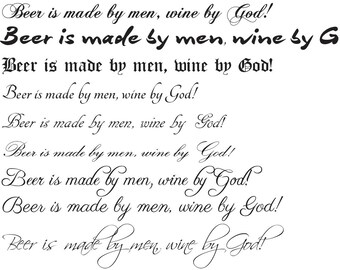 Beer is made by men, wine by God!
Beer is made by men, wine by G
Beer is made by men, wine by God!
Beer is made by men, wine by God!
Beer is made by men, wine by God!
Beer is made by men, wine by God!
Beer is made by men, wine by God!
Beer is made by men, wine by God!
Beer is made by men, wine by God!